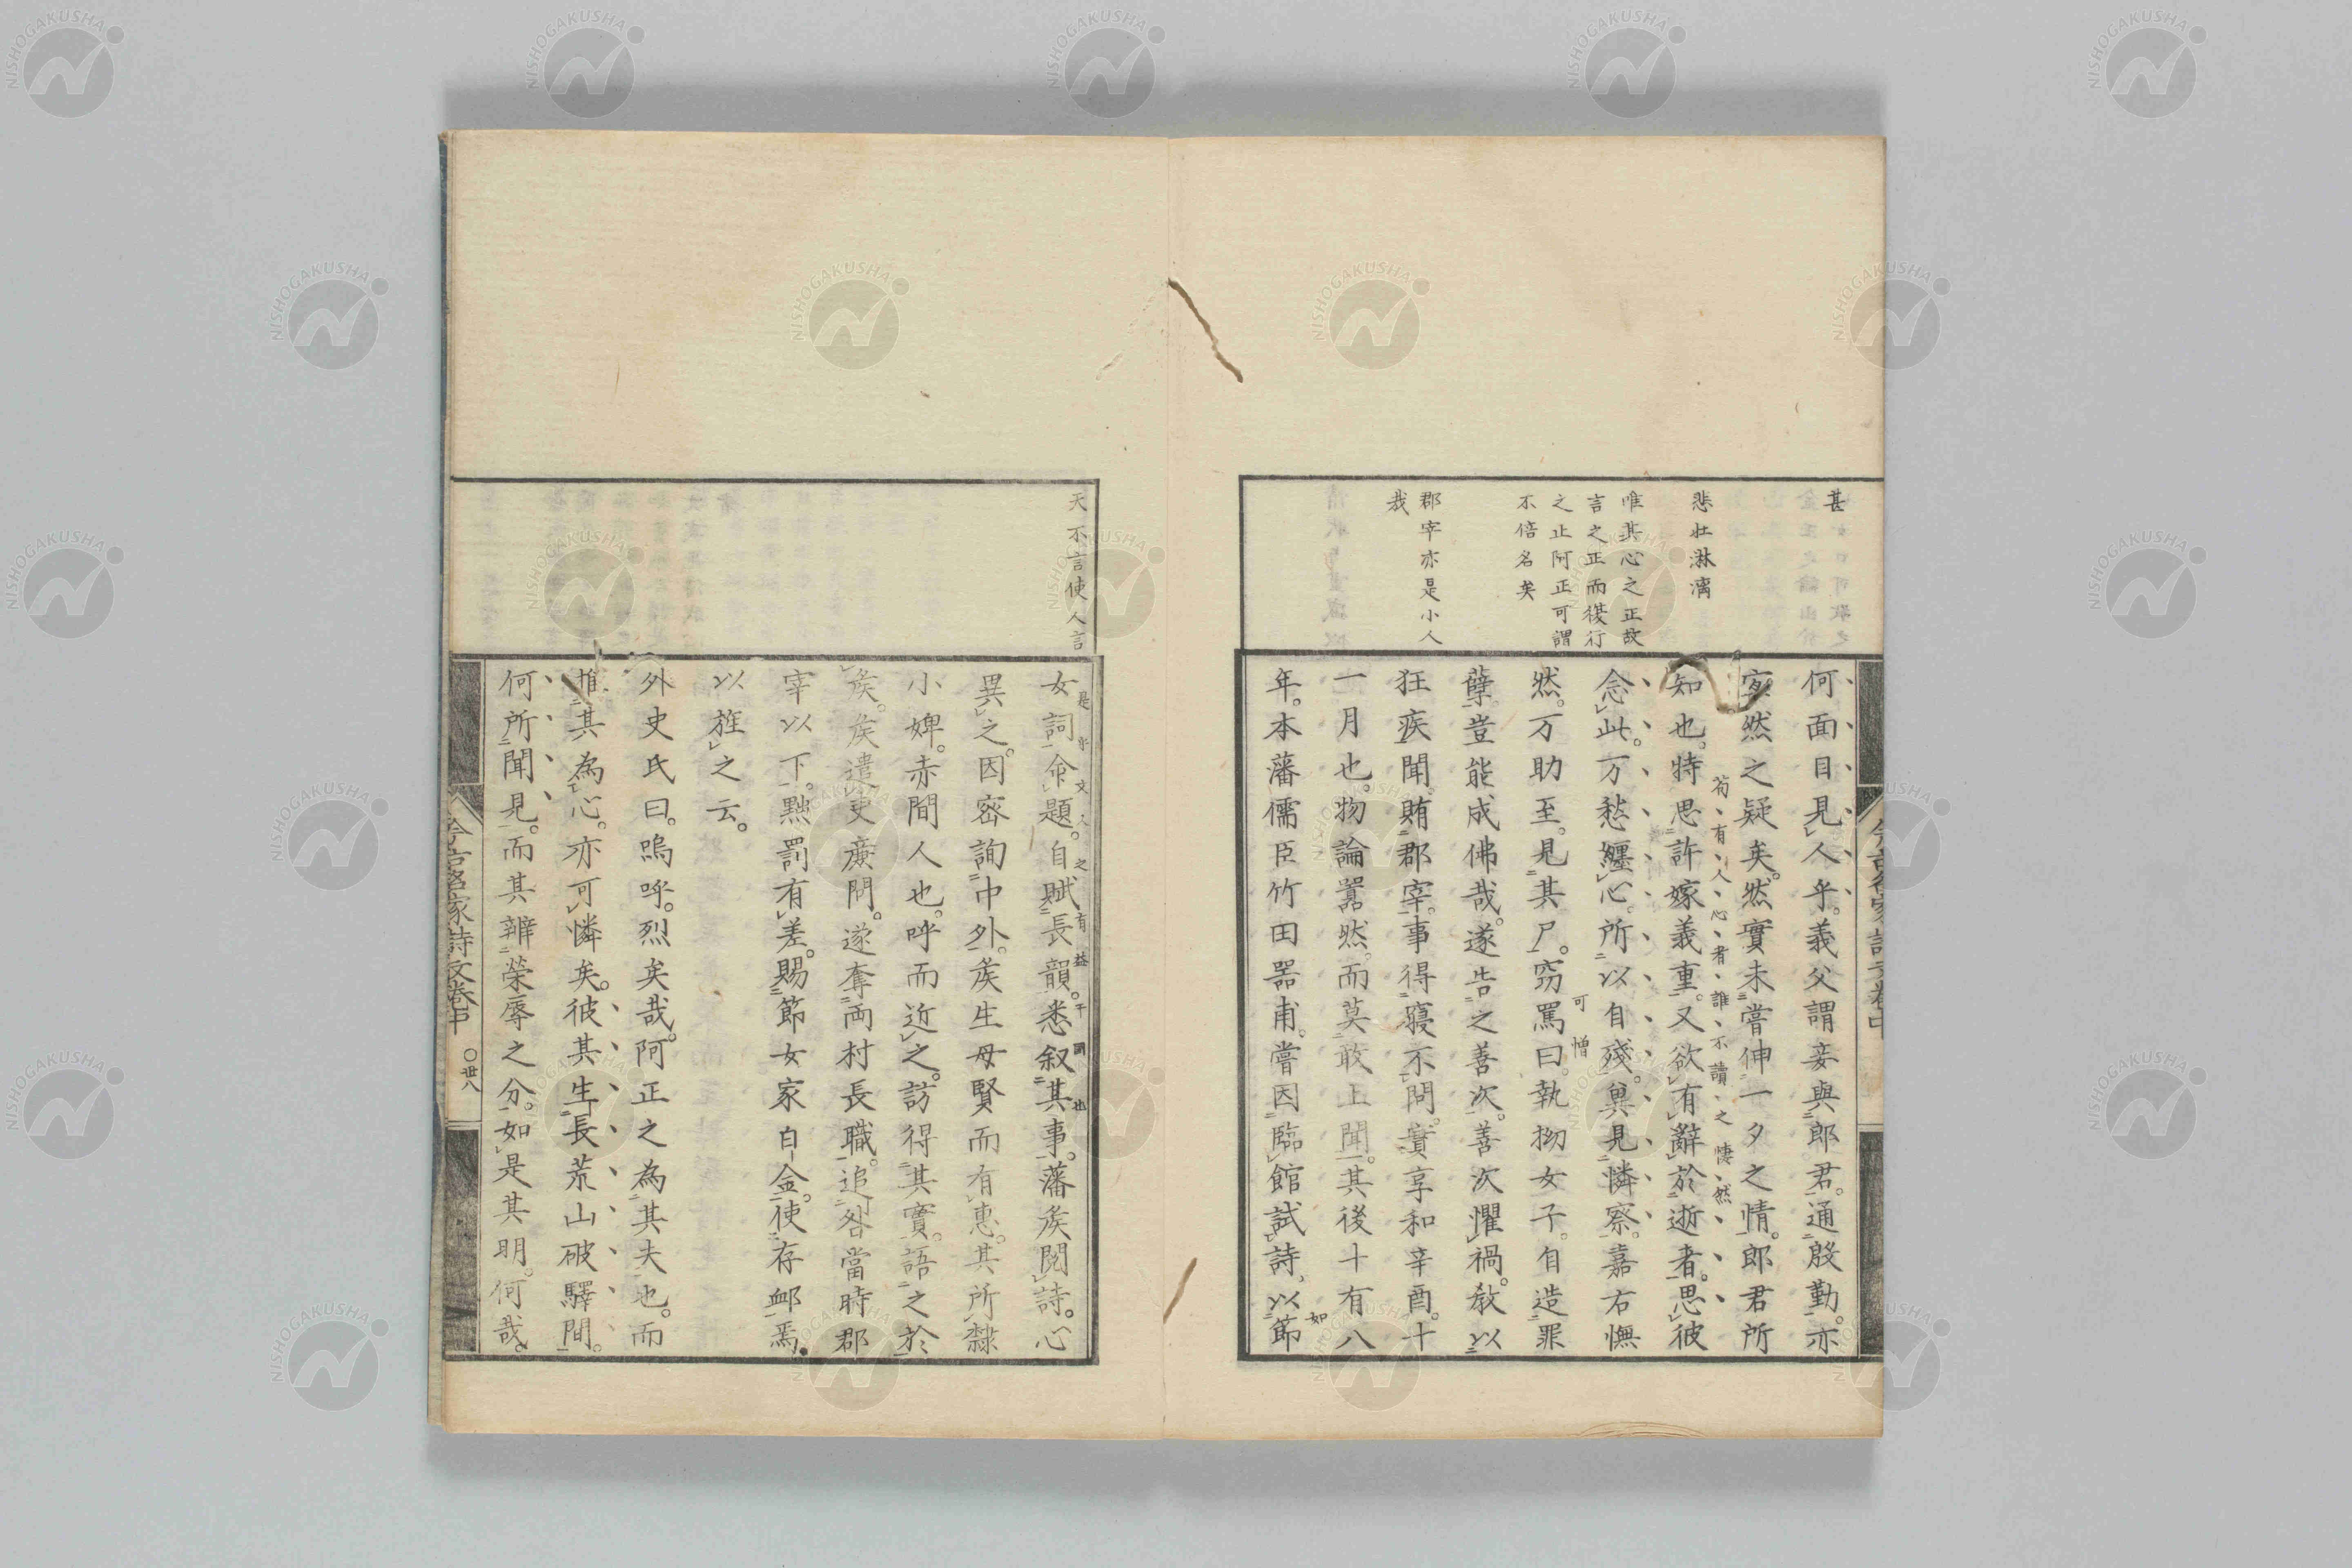 甚
悲壮淋漓
唯其心之正故
言之正而後行
之止阿正可謂
不倍名矣
郡宰亦是小人
哉
何面目見人乎。義父謂妾與郎君。通殷勤。亦
寃然之疑矣。然實未嘗伸一夕之情。郎君所
苟有人心者誰不讀之悽然
知也。特思許嫁義重。又欲有辭於逝者。思彼
念此。万愁纏心。所以自殘。冀見憐察。嘉右憮
可憎
然。万助至。見其尸。窃罵曰。執拗女子。自造罪
孽。豈能成佛哉。遂告之善次。善次懼禍。教以
狂疾聞。賄郡宰。事得寢不問。實享和辛酉。十
一月也。物論囂然。而莫敢上聞。其後十有八
如
年。本藩儒臣竹田器甫。嘗因臨館試詩、以節
天不言使人言
是亦文人之有益于國也
女詞命題。自賦長韻。悉叙其事。藩矦閲詩。心
異之。因密詢中外。矦生母賢而有惠。其所隸
小婢。赤間人也。呼而近之。訪得其實。語之於
矦。矦遣吏廉問。遂奪両村長職。追咎當時郡
宰以下。黜罰有差。賜節女家白金。使存卹焉。
以旌之云。
外史氏曰。嗚呼。烈矣哉。阿正之為其夫也。而
推其為心。亦可憐矣。彼其生長荒山破驛間。
何所聞見。而其辨榮辱之分。如是其明。何哉。
今古名家詩文巻中 〇卅八